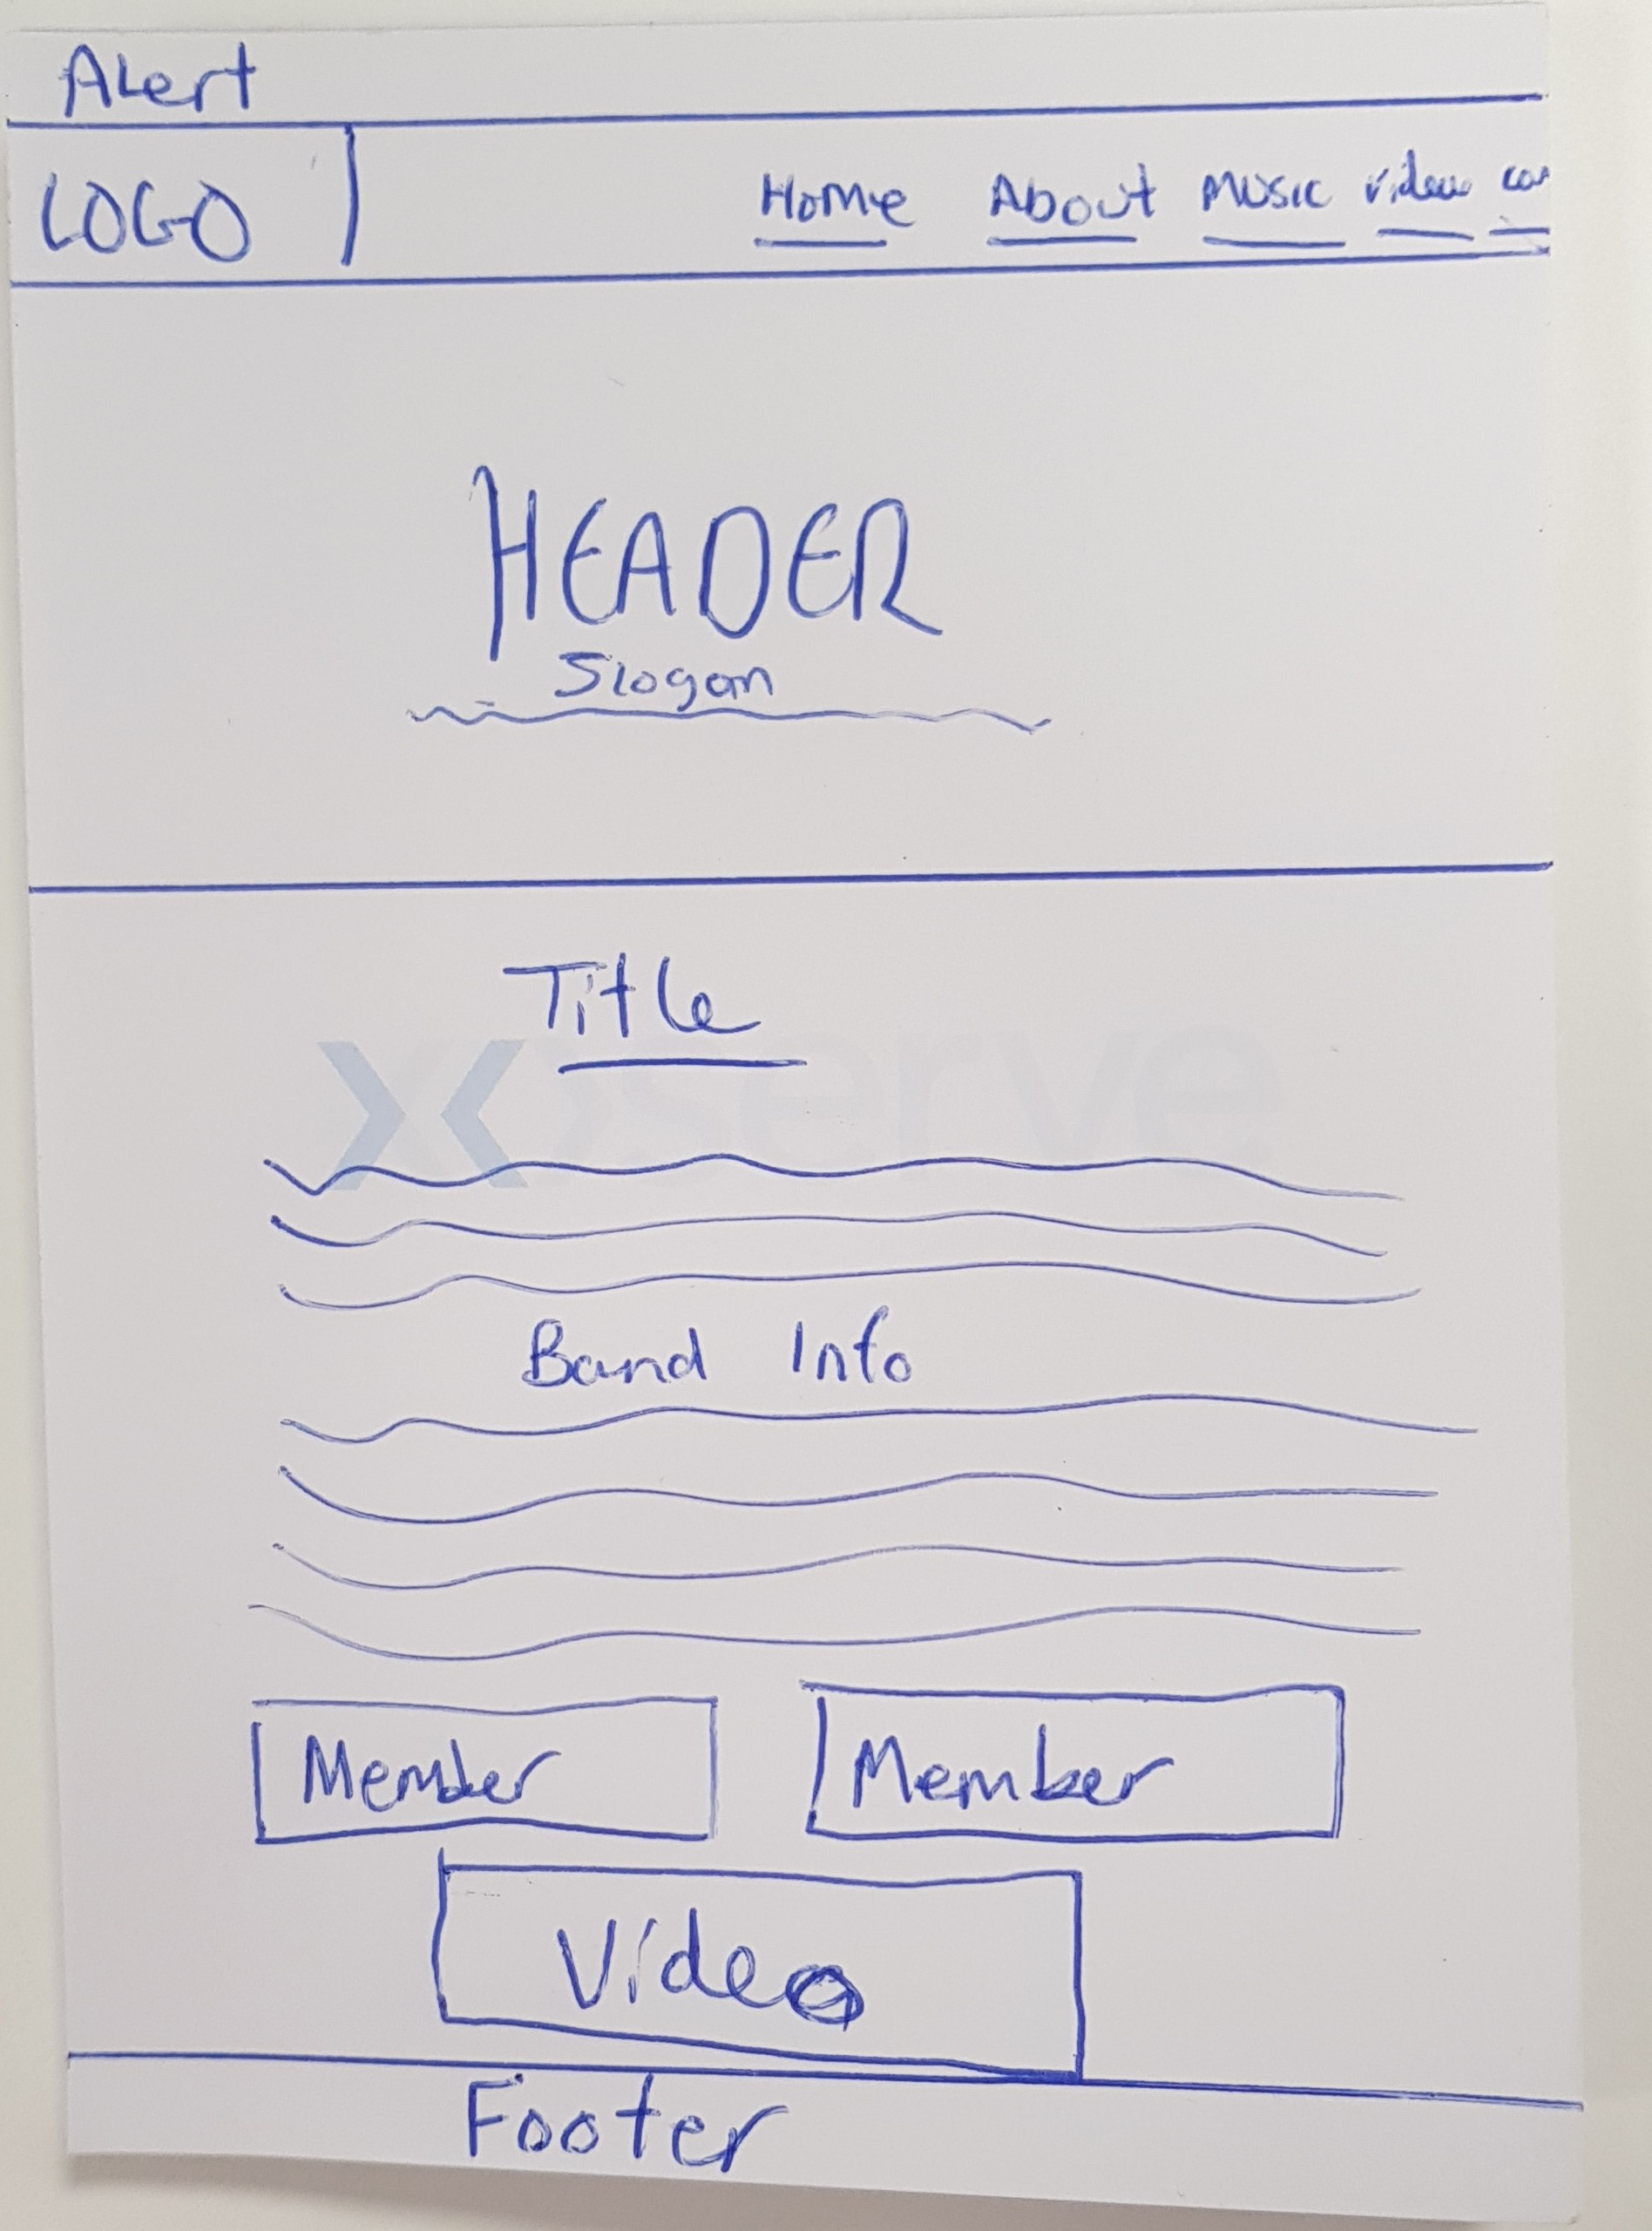 Alert
LOGO
Home About Music Video
HEADER
Slogan
Title
serve
Band Info
Member Member
Video
Footer